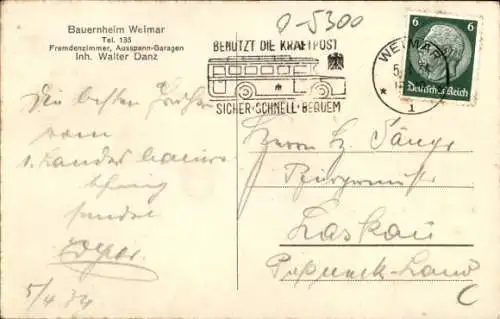 Bauernheim Weimar
Tel. 135
Fremdenzimmer, Ausspann-Garagen
Inh. Walter Danz
0-5300
BENUTZT DIE KRAFTPOST
SICHER·SCHNELL·BEQUEM
WEIMAR
* 1
6 6
Deutsches Reich
Die besten Grüße
vom
1. Landesbauern-
thing
sendet
5/4 34
Herrn
Bürgermstr.
Laskau
Pößneck-Land